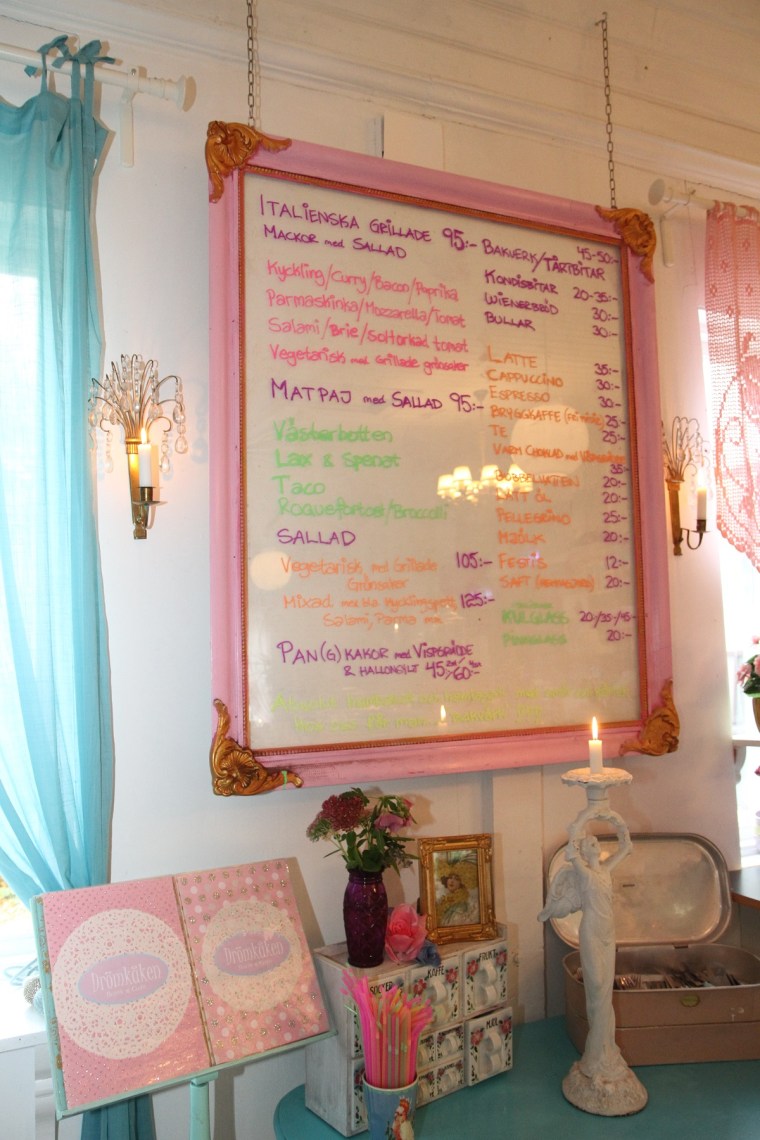 ITALIENSKA GRILLADE 95:-
MACKOR med SALLAD
Kyckling/Curry/Bacon/Paprika
Parmaskinka/Mozzarella/Tomat
Salami/Brie/Soltorkad tomat
Vegetarisk med Grillade grönsaker
MATPAJ med SALLAD 95:-
Västerbotten
Lax & Spenat
Taco
Roquefortost/Broccoli
SALLAD
Vegetarisk med Grillade 105:-
Grönsaker
Mixad med bla kycklingspett, 125:-
Salami, Parma mm
PAN(G)KAKOR med VISPGRÄDDE
& HALLONSYLT 45 60:-
BAKVERK/TÅRTBITAR 45-50:-
KONDISBITAR 20-35:-
WIENERBRÖD 30:-
BULLAR 30:-
LATTE 35:-
CAPPUCCINO 30:-
ESPRESSO 30:-
BRYGGKAFFE 25:-
TE 25:-
VARM CHOKLAD med 35:-
BUBBELVATTEN 20:-
LÄTT ÖL 20:-
PELLEGRINO 25:-
MJÖLK 20:-
FESTIS 12:-
SAFT 20:-
KULGLASS 20:-/35:-/45:-
PINNGLASS 20:-
Drömkåken
Drömkåken
SOCKER
KAFFE
FRUKT
MJÖL